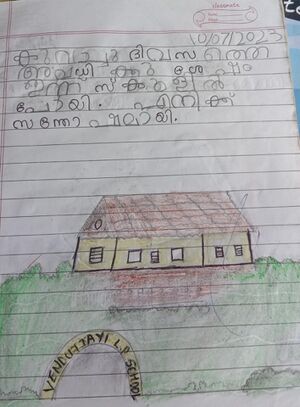 classmate
10/07/2023
കുറച്ചു ദിവസത്തെ
അവധി ക്കു ശേഷം
ഇന്ന് സ്കൂളിൽ
പോയി. എനിക്ക്
സന്തോഷമായി.
VENDUTTAYI L.P SCHOOL